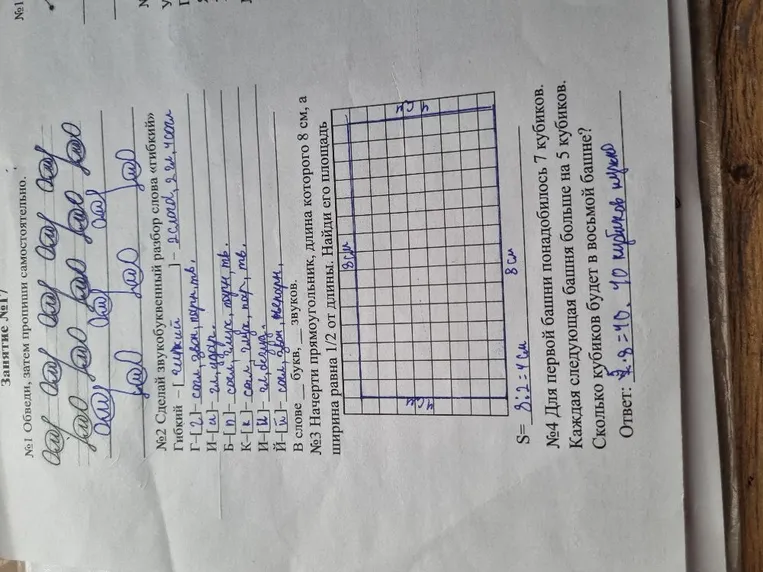 №1
Занятие №17
№1 Обведи, затем пропиши самостоятельно.
№2 Сделай звукобуквенный разбор слова «гибкий»
Гибкий – [ гипкий ] – 2 слога, 2 гл, 4 согл
Г–[г]– согл, звон, парн, тв.
И–[и]– гл, удар.
Б–[п]– согл, глух, парн, тв.
К–[к]– согл, глух, пар, тв.
И–[и]– гл, безуд.
Й–[й]– согл, звон, непарн,
В слове __ букв, __ звуков.
№3 Начерти прямоугольник, длина которого 8 см, а
ширина равна 1/2 от длины. Найди его площадь
8 см
8 см
S= 8:2=4 см
№4 Для первой башни понадобилось 7 кубиков.
Каждая следующая башня больше на 5 кубиков.
Сколько кубиков будет в восьмой башне?
Ответ: 5·8=40. 40 кубиков нужно